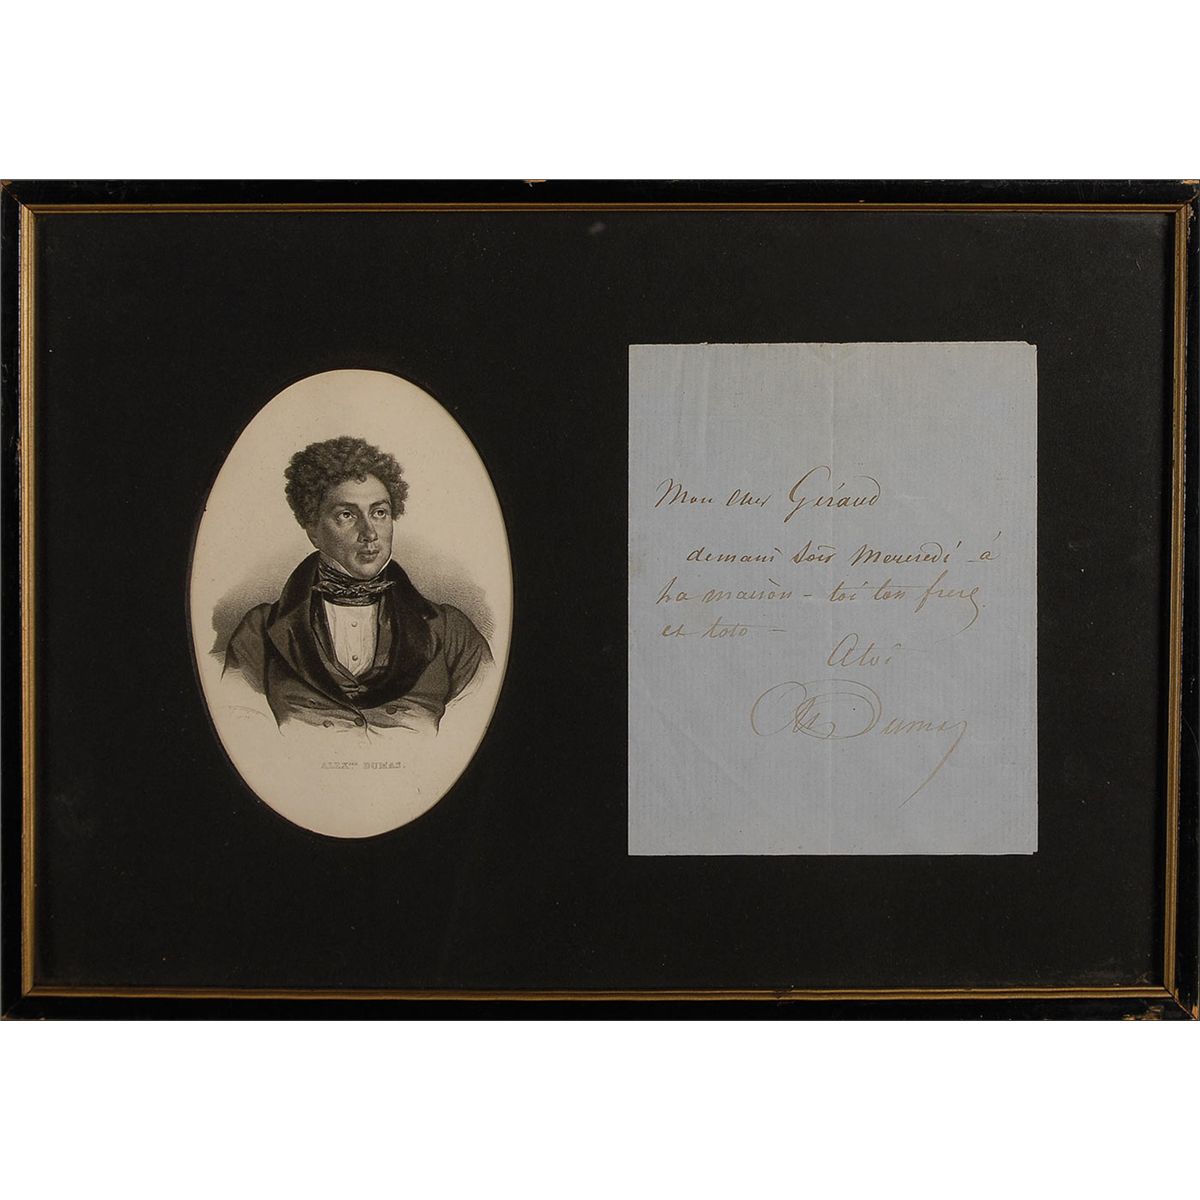 ALEX.DRE DUMAS.
Mon cher Giraud
demain soir Mercredi - à
la maison - toi ton frere
et toto -
A toi
Alx Dumas